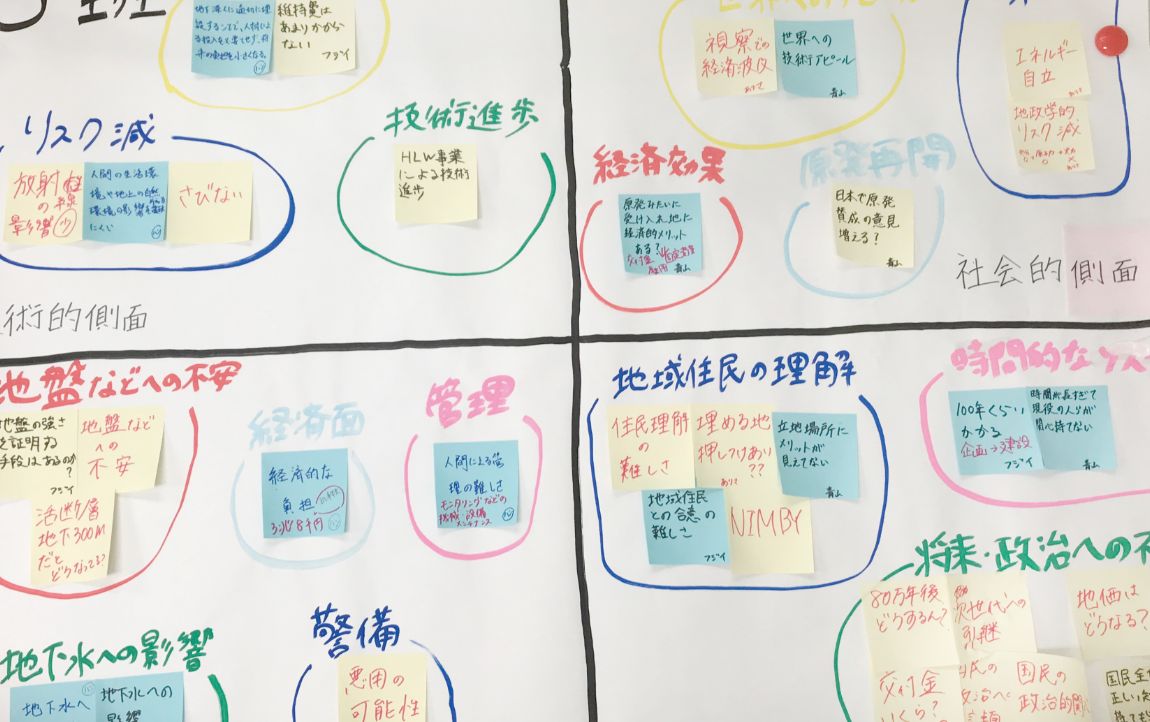 維持費は
あまりかから
ない
フジイ
リスク減
放射線
の
影響
少
人間の生活環
境や地上の自然
環境の影響を
にくい
さびない
技術進歩
HLW事業
による技術
進歩
術的側面
視察での
経済波及
世界への
技術アピール
青山
エネルギー
自立
地政学的
リスク減
経済効果
原発みたいに
受け入れ地に
経済的メリット
ある?
交付金
雇用
青山
原発再開
日本で原発
賛成の意見
増える?
青山
社会的側面
地盤などへの不安
地盤の強さ
を証明する
手段はあるのか
?
フジイ
地盤など
への
不安
活断層
地下300m
だと
どうなってる?
経済面
経済的な
負担
3兆8千円
管理
人間による管
理の難しさ
モニタリングなどの
機械・設備
メンテナンス
地下水への影響
地下水へ
地下水への
影響
警備
悪用の
可能性
地域住民の理解
住民理解
の
難しさ
埋める地
押しつけあり
??
立地場所に
メリットが
見えてない
青山
地域住民
との合意の
難しさ
フジイ
NIMBY
時間的な
100年くらい
かかる
企画→建設
フジイ
時間が長すぎて
現役の人らが
関心持てない
青山
将来・政治への不
80万年後
どうするん?
次世代への
引継
地価は
どうなる?
交付金
いくら?
国民の
政治的関
国民全
正しい